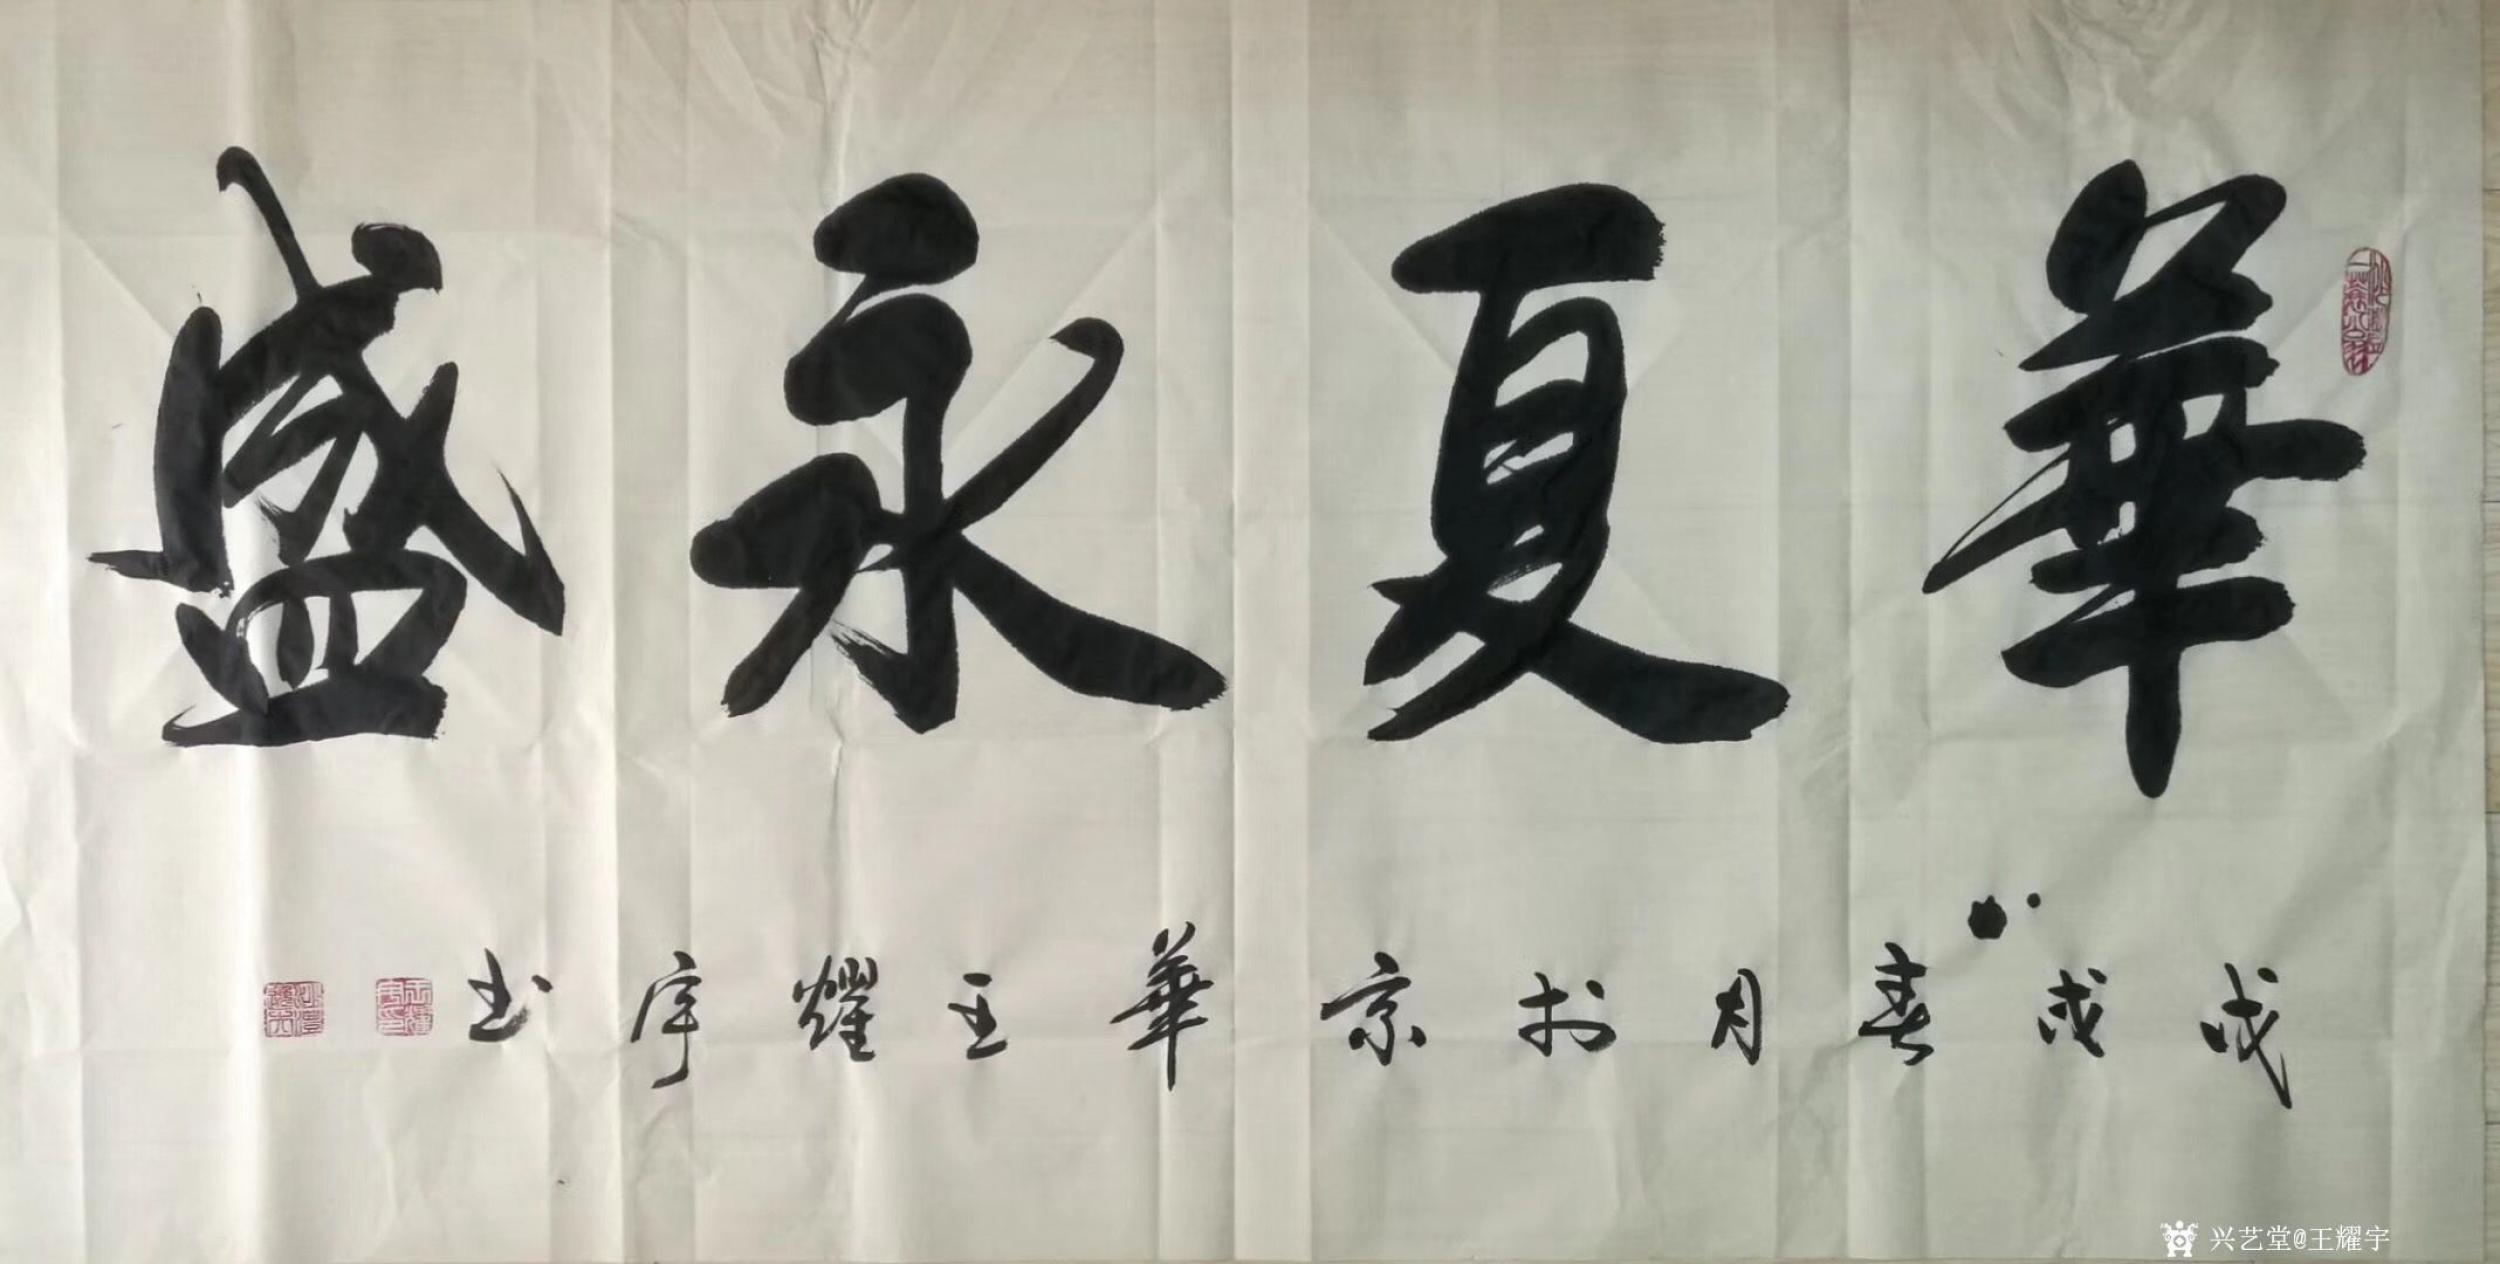 華夏永盛
戊戌春月於京華王耀宇书
兴艺堂@王耀宇